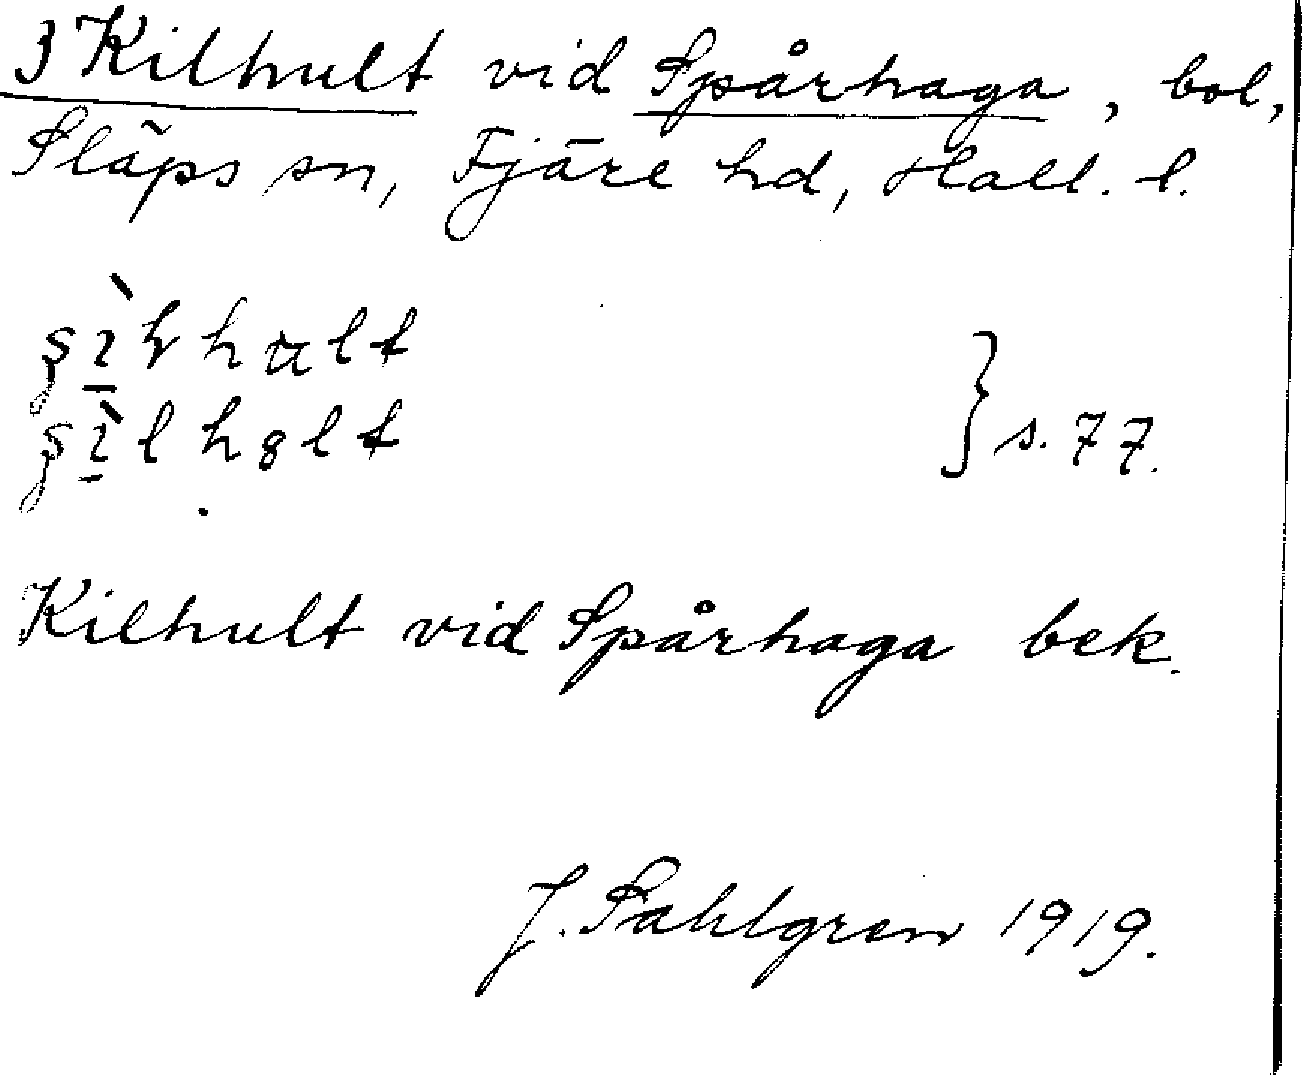 3 Kilhult vid Spårhaga, bol,
Släps sn, Fjäre hd, Hall. l.
s. 77.
Kilhult vid Spårhaga bek.
J. Sahlgren 1919.